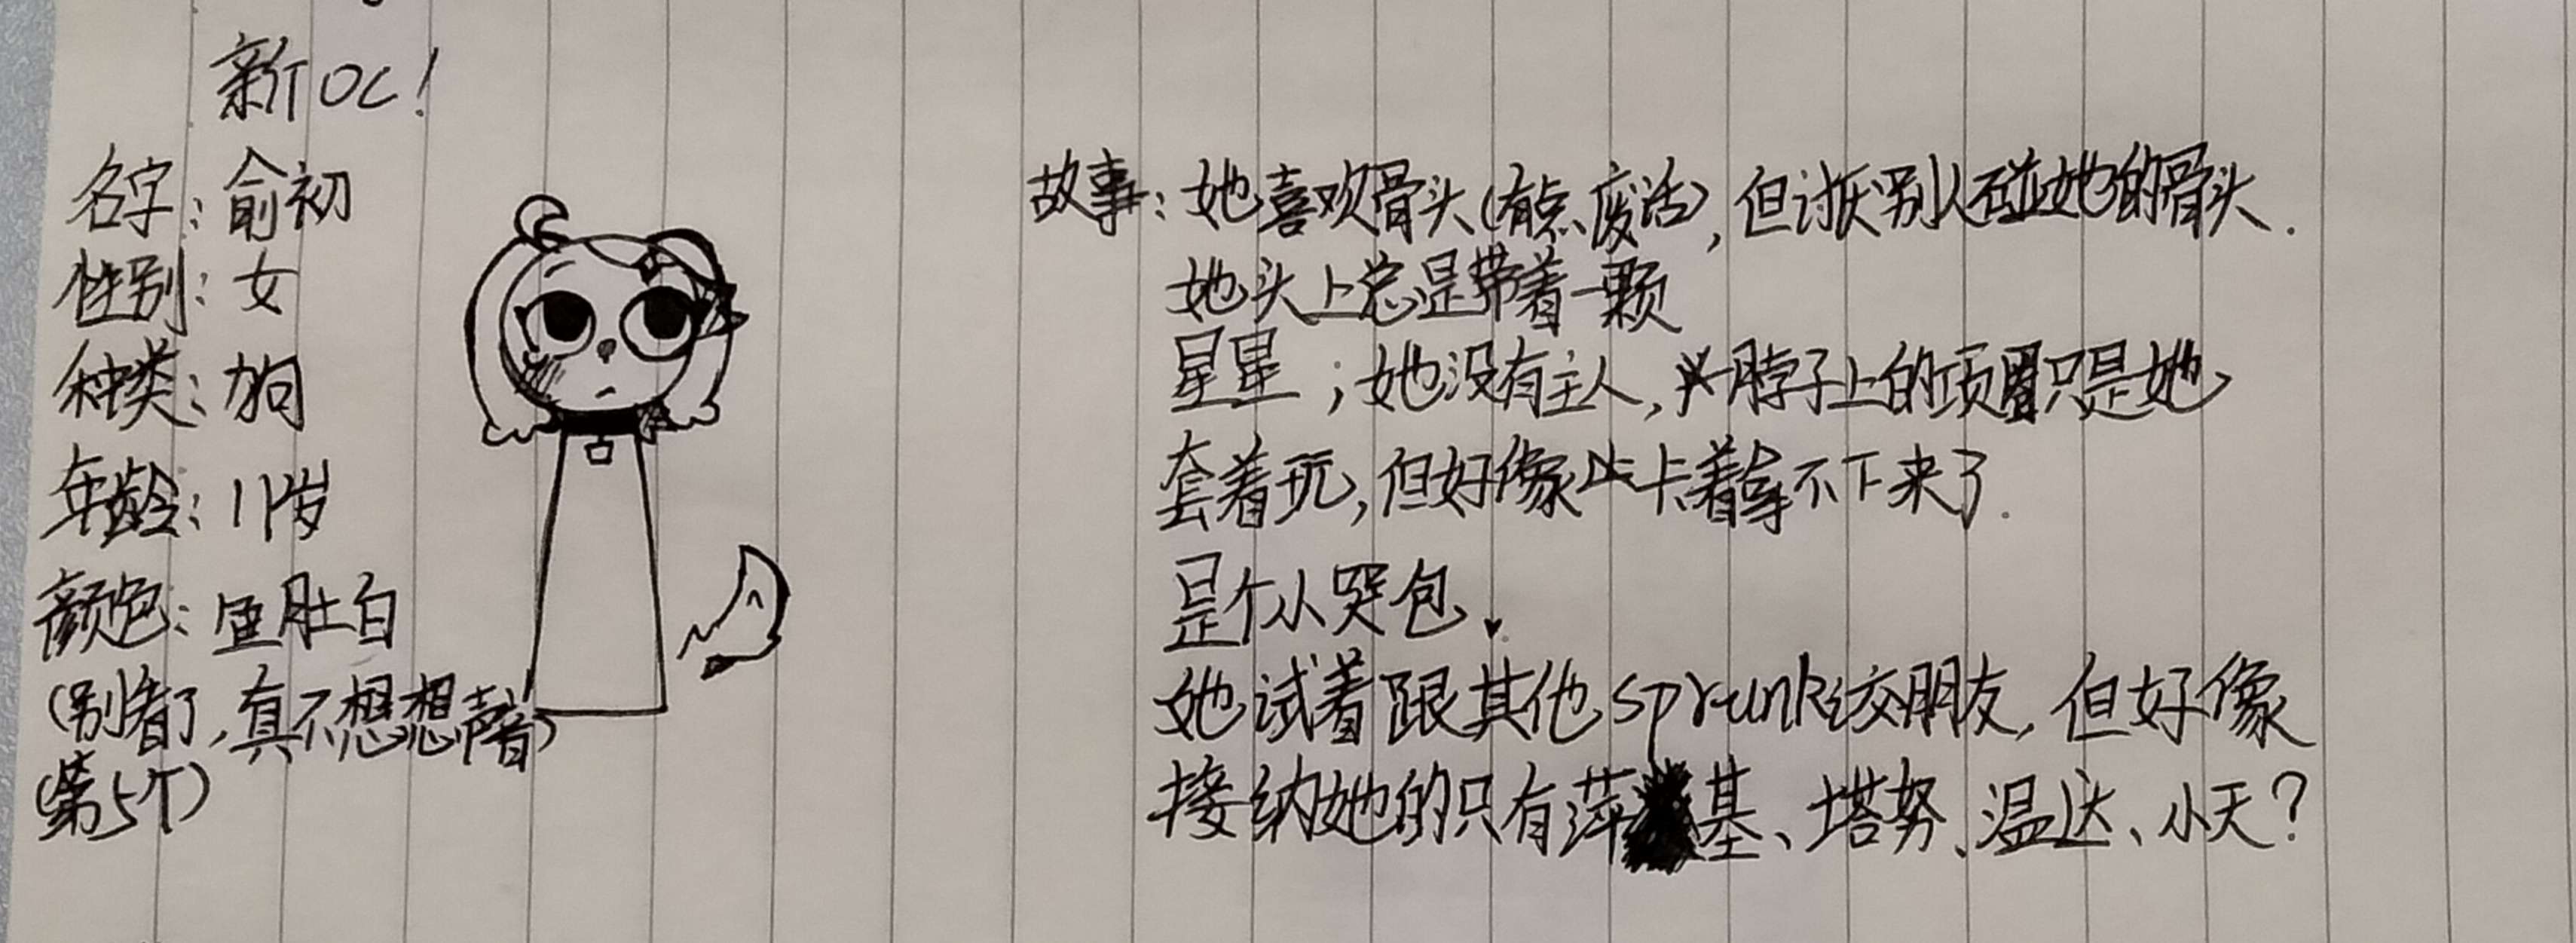 新OC!
名字：俞初
性别：女
种类：狗
年龄：11岁
颜色：鱼肚白
(别看了,真不想想声音)
(第5个)
故事：她喜欢骨头(有点废话),但讨厌别人碰她的骨头.
她头上总是带着一颗
星星；她没有主人,脖子上的项圈只是她
套着玩,但好像卡着拿不下来了.
是个小哭包.
她试着跟其他sprunki交朋友,但好像
接纳她的只有萍基、塔努、温达、小天?